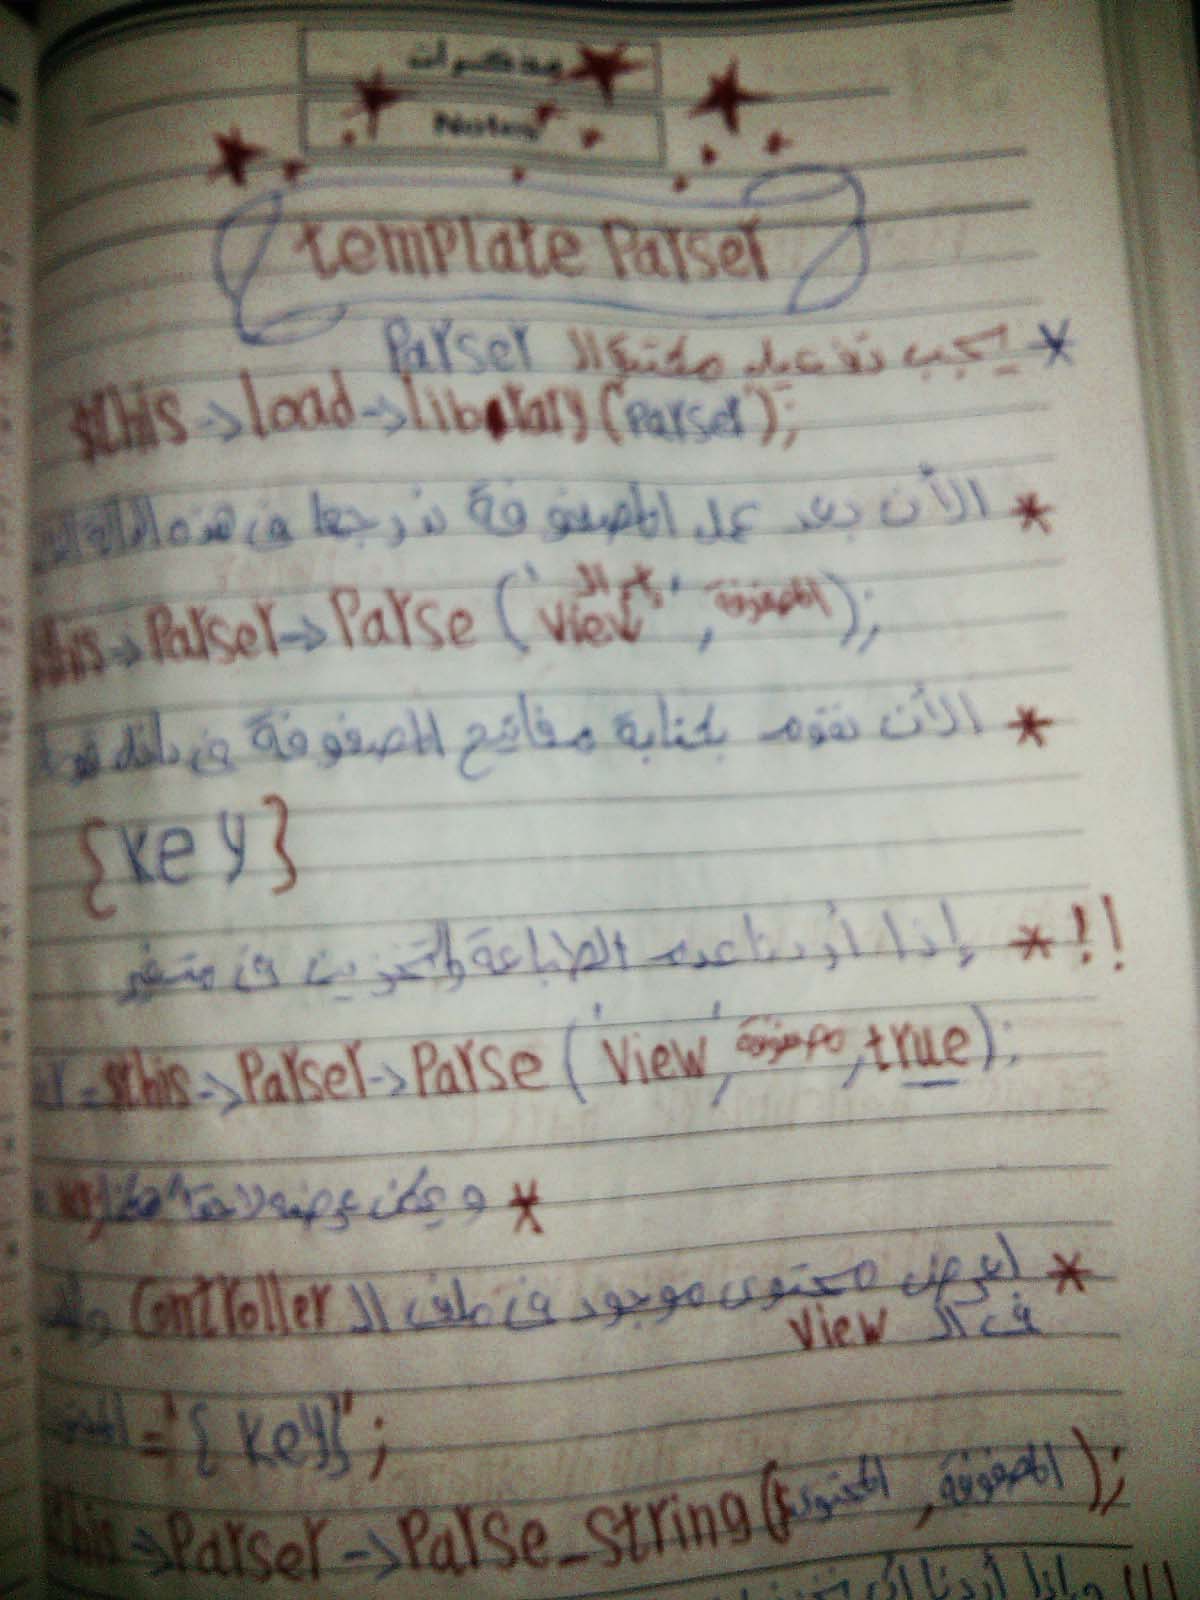 مذكرات
Notes
template Parser
* يجب تفعيل مكتبة الـ Parser
$this->load->library('parser');
* الأن بعد عمل المصفوفة ندرجها في هذه الدالة
this->Parser->Parse('اسم الـ view', المصفوفة);
* الأن نقوم بكتابة مفاتيح المصفوفة في ملف
{key}
!! * إذا أردنا عدم الطباعة والتخزين في متغير
= $this->Parser->Parse('view', مصفوفة, true);
* و يمكن عرضه لاحقاً هكذا
* لعرض محتوى موجود في ملف الـ Controller
في الـ view
= '{key}';
this->Parser->Parse_string(المحتوى, المصفوفة);
!!! وإذا أردنا